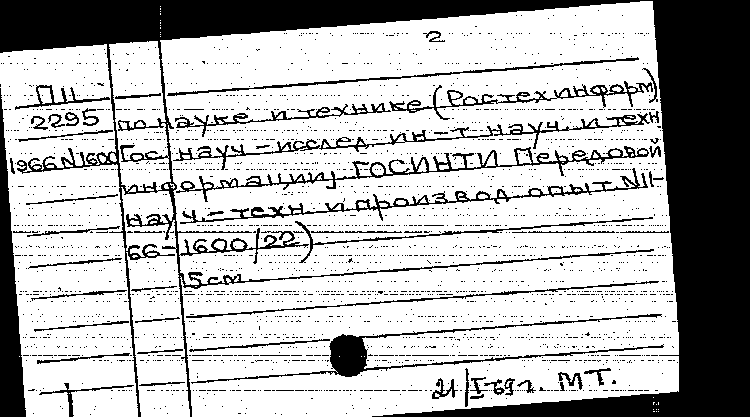 2
П11
2295 по науке и технике (Ростехинформ)
1966 N1600 Гос. науч-исслед. ин-т науч. и техн
информации, ГОСИНТИ Передовой
науч.-техн. и производ. опыт N11-
66-1600/22)
15 cm.
21/I-69г. МТ.